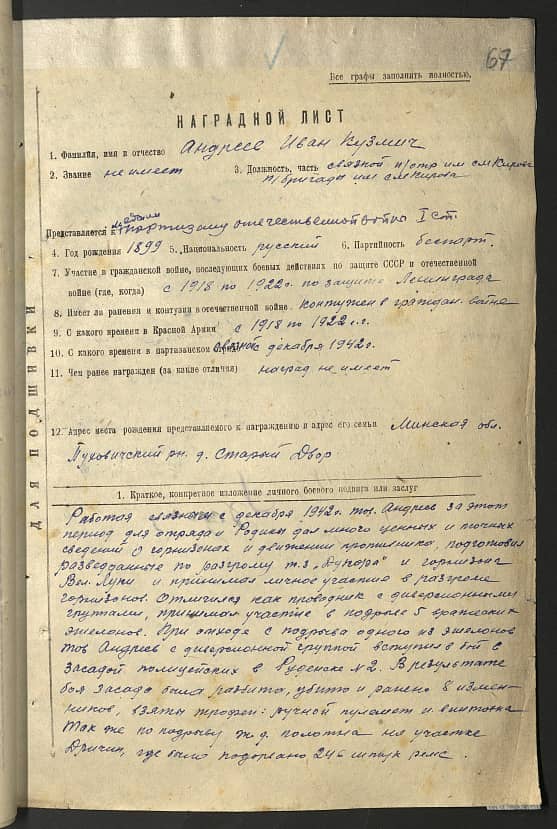 67
Все графы заполнить полностью.
НАГРАДНОЙ ЛИСТ
1. Фамилия, имя и отчество Андреев Иван Кузмич
2. Звание не имеет 3. Должность, часть связной п/отр им см Кирова
п/бригады им см Кирова
Представляется к медали Партизану отечественной войны I ст.
4. Год рождения 1899 5. Национальность русский 6. Партийность беспарт.
7. Участие в гражданской войне, последующих боевых действиях по защите СССР и отечественной
войне (где, когда) с 1918 по 1922 г. по защите Ленинграда
8. Имеет ли ранения и контузии в отечественной войне контужен в граждан. войне
9. С какого времени в Красной Армии с 1918 по 1922 г.г.
10. С какого времени в партизанском связной с декабря 1942 г.
11. Чем ранее награжден (за какие отличия) наград не имеет
12. Адрес места рождения представляемого к награждению и адрес его семьи Минская обл.
Пуховичский рн. д. Старый Двор
ДЛЯ ПОДШИВКИ
1. Краткое, конкретное изложение личного боевого подвига или заслуг
Работая связным с декабря 1942 г. тов. Андреев за этот
период для отряда и Родины дал много ценных и точных
сведений о горнизонах и движении противника, подготовил
разведданные по разгрому ж.д. "Дукора" и горнизона
Вел. Луки и принимал личное участие в разгроме
горнизонов. Отличился как проводник с диверсионными
групами, принимал участие в подрыве 5 вражеских
эшелонов. При отходе с подрыва одного из эшелонов
тов Андреев с диверсионной группой вступил в бой с
засадой полицейских в Руденске №2. В результате
боя засада была разбита, убито и ранено 8 измен-
ников, взяты трофеи: ручной пулемет и винтовка
Так же по подрыву ж.д. полотна на участке
Дричин, где было подорвано 246 штук релс.